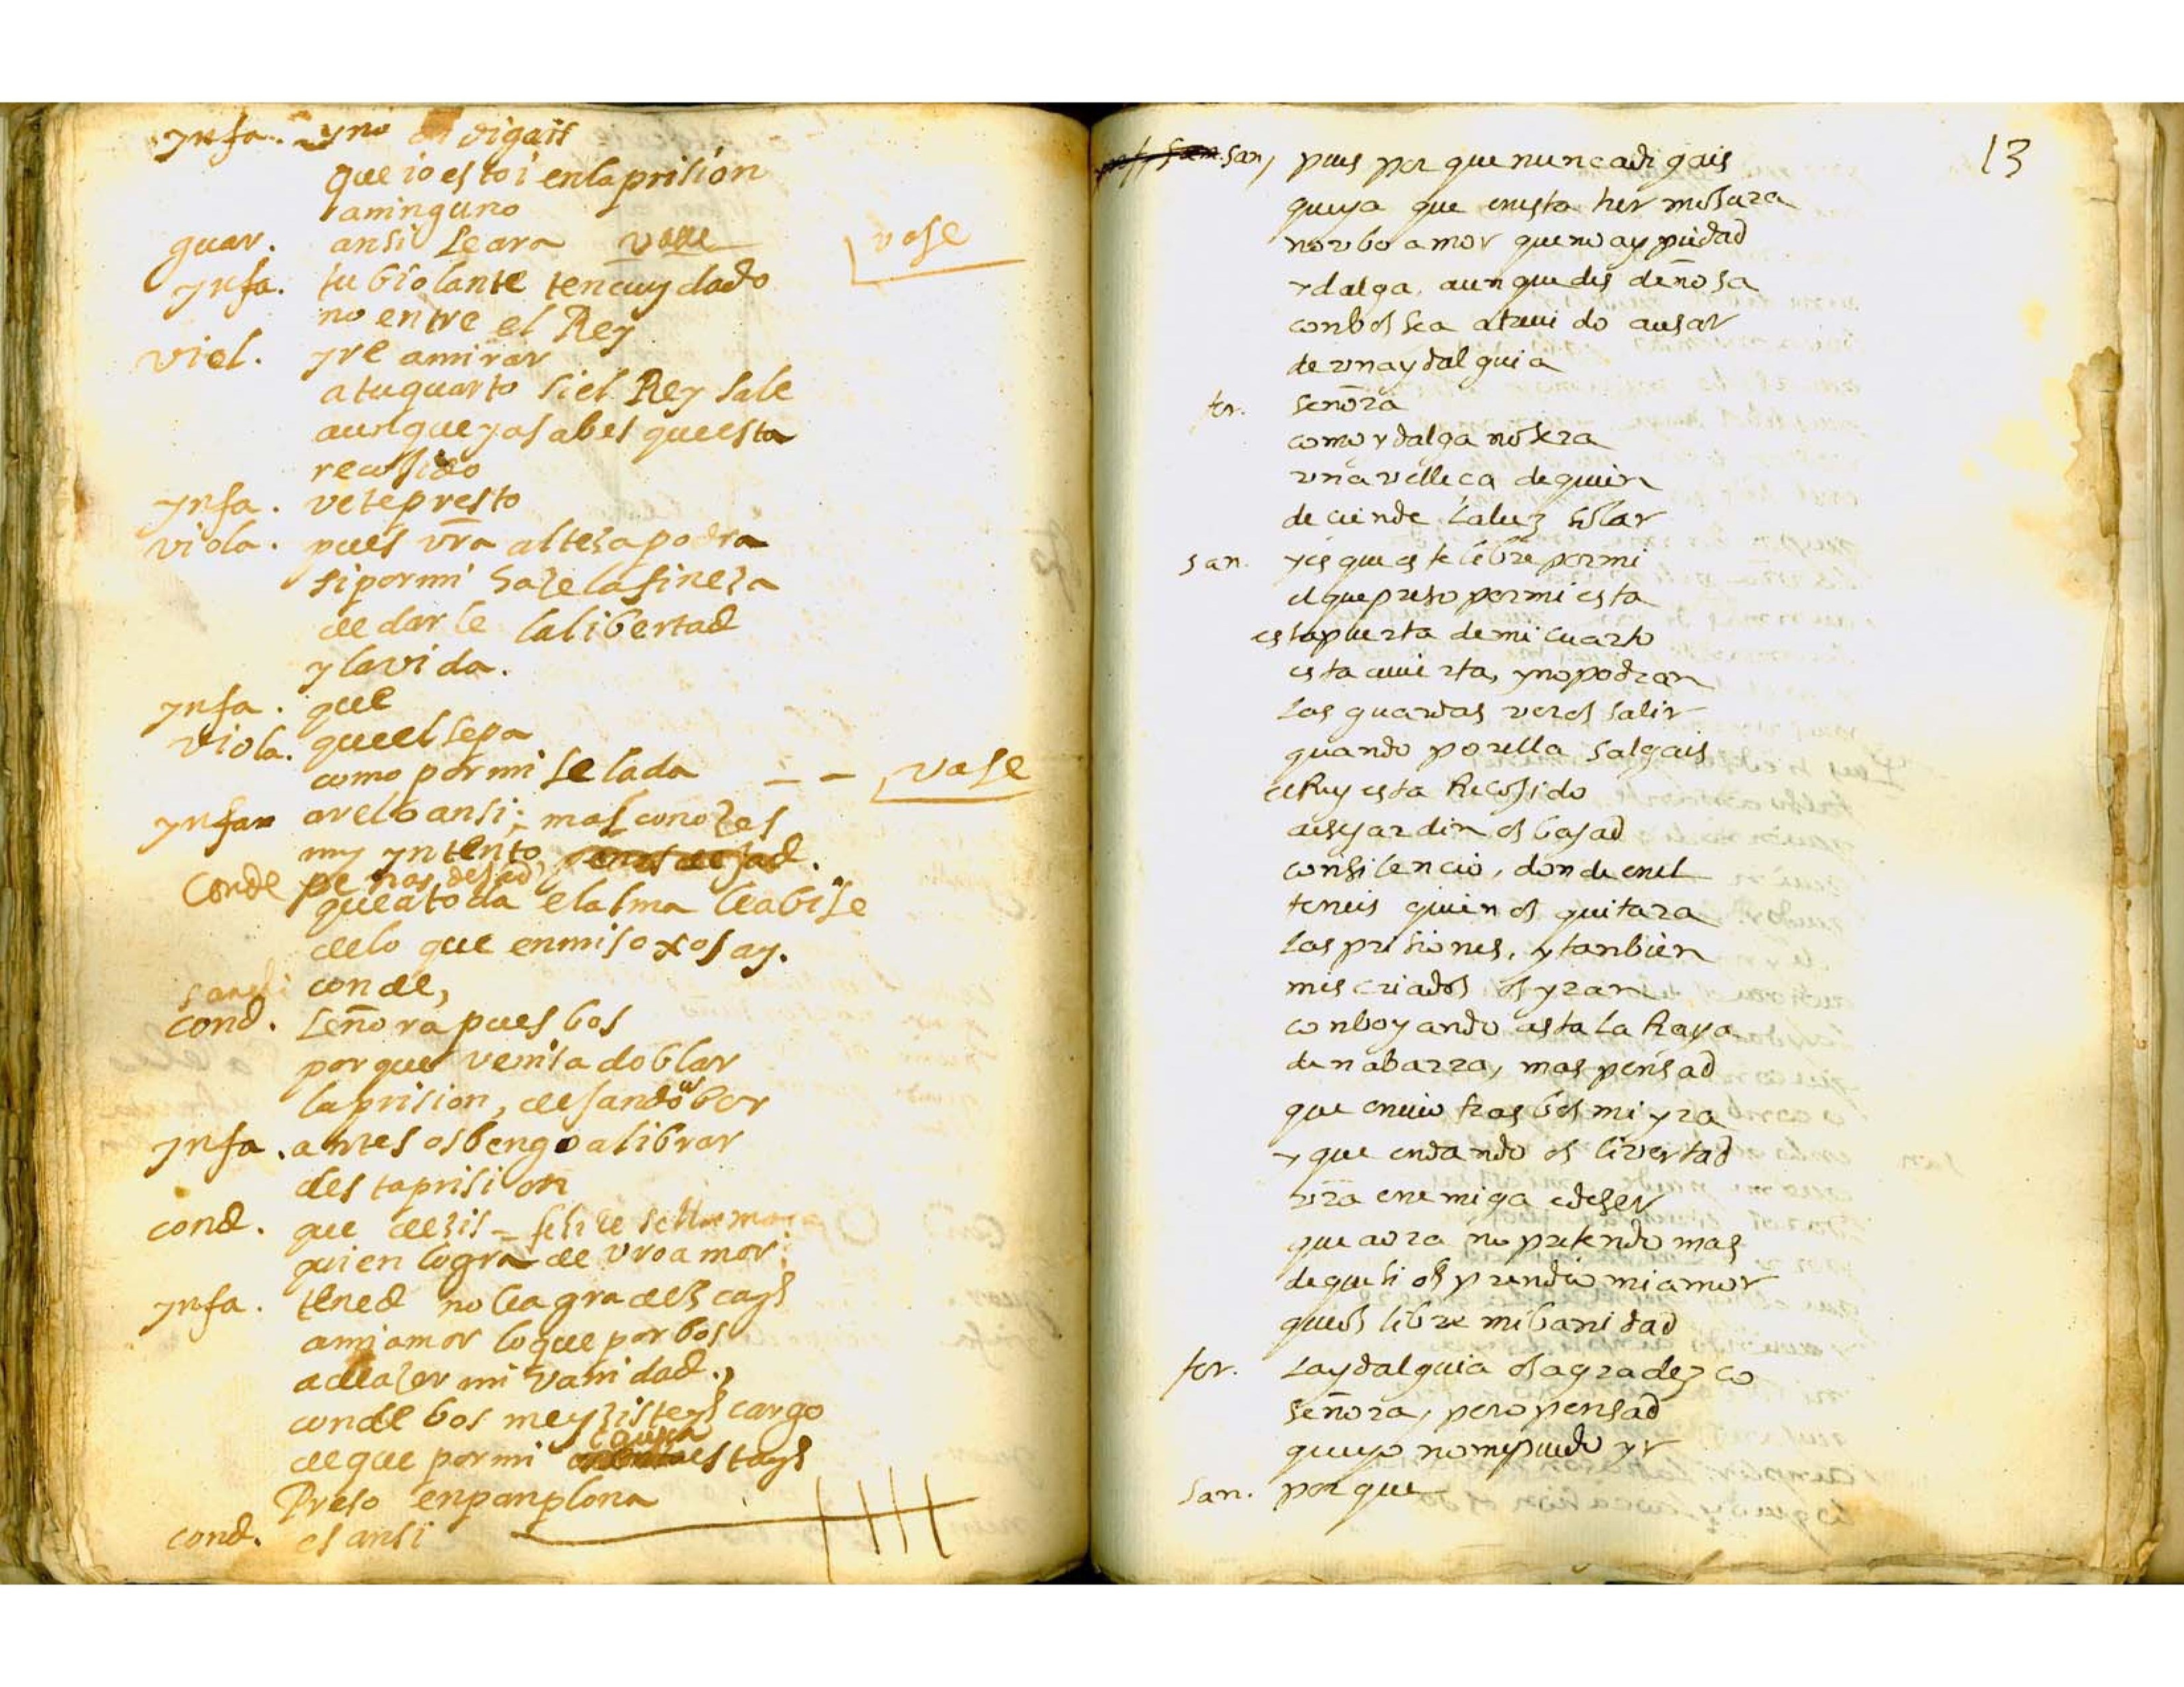 ynfa. y no digais
que io estoi en la prision
a ninguno
guar. ansi se ara vase vase
ynfa. tu biolante ten cuydado
no entre el Rey
viol. yre a mirar
a tu quarto si el Rey sale
aunque ya sabes questa
recojido
ynfa. vete presto
viola. pues vra alteza podra
si por mi haze la fineza
de darle la libertad
y la vida.
ynfa. que
viola. que el sepa
como por mi se la da vase
ynfan arelo ansi; mas conozes
my yntento
Conde penas dejad
que a toda el alma le abise
de lo que en mis oxos ay.
conde,
cond. señora pues bos
por que venis a doblar
la prision, dejandoos ber
ynfa. antes os bengo a librar
desta prision
cond. que dezis – felize se llama
quien logra de vro amor
ynfa. tened no le agradezcays
a mi amor lo que por bos
a de azer mi vanidad.,
conde bos me yzisteys cargo
de que por mi causa estays
Preso en panplona
cond. es ansi
13
san, pues por que nunca digais
que ya que en esta hermosura
no vbo amor que no ay piedad
ydalga, aunque desdeñosa
con bos sea atreuido ausar
de vna ydalguia
for. señora
como ydalga no sera
vna velleça de quien
deciende la luz solar
san. y es que este libre por mi
el que preso por mi esta
esta puerta de mi cuarto
esta auierta, y no podran
las guardas veros salir
quando por ella salgais
el Rey esta Recojido
a ese jardin os bajad
con silencio, donde en el
teneis quien os quitara
las prisiones, y tanbien
mis criados os yran
conboyando asta la Raya
de nabarra, mas pensad
que enuio tras bos mi yra
y que en dando os livertad
vra enemiga e de ser
que aora no pretendo mas
de que si os prendio mi amor
que os libre mi banidad
for. la ydalguia os agradezco
señora, pero pensad
que yo no me puedo yr
san. por que